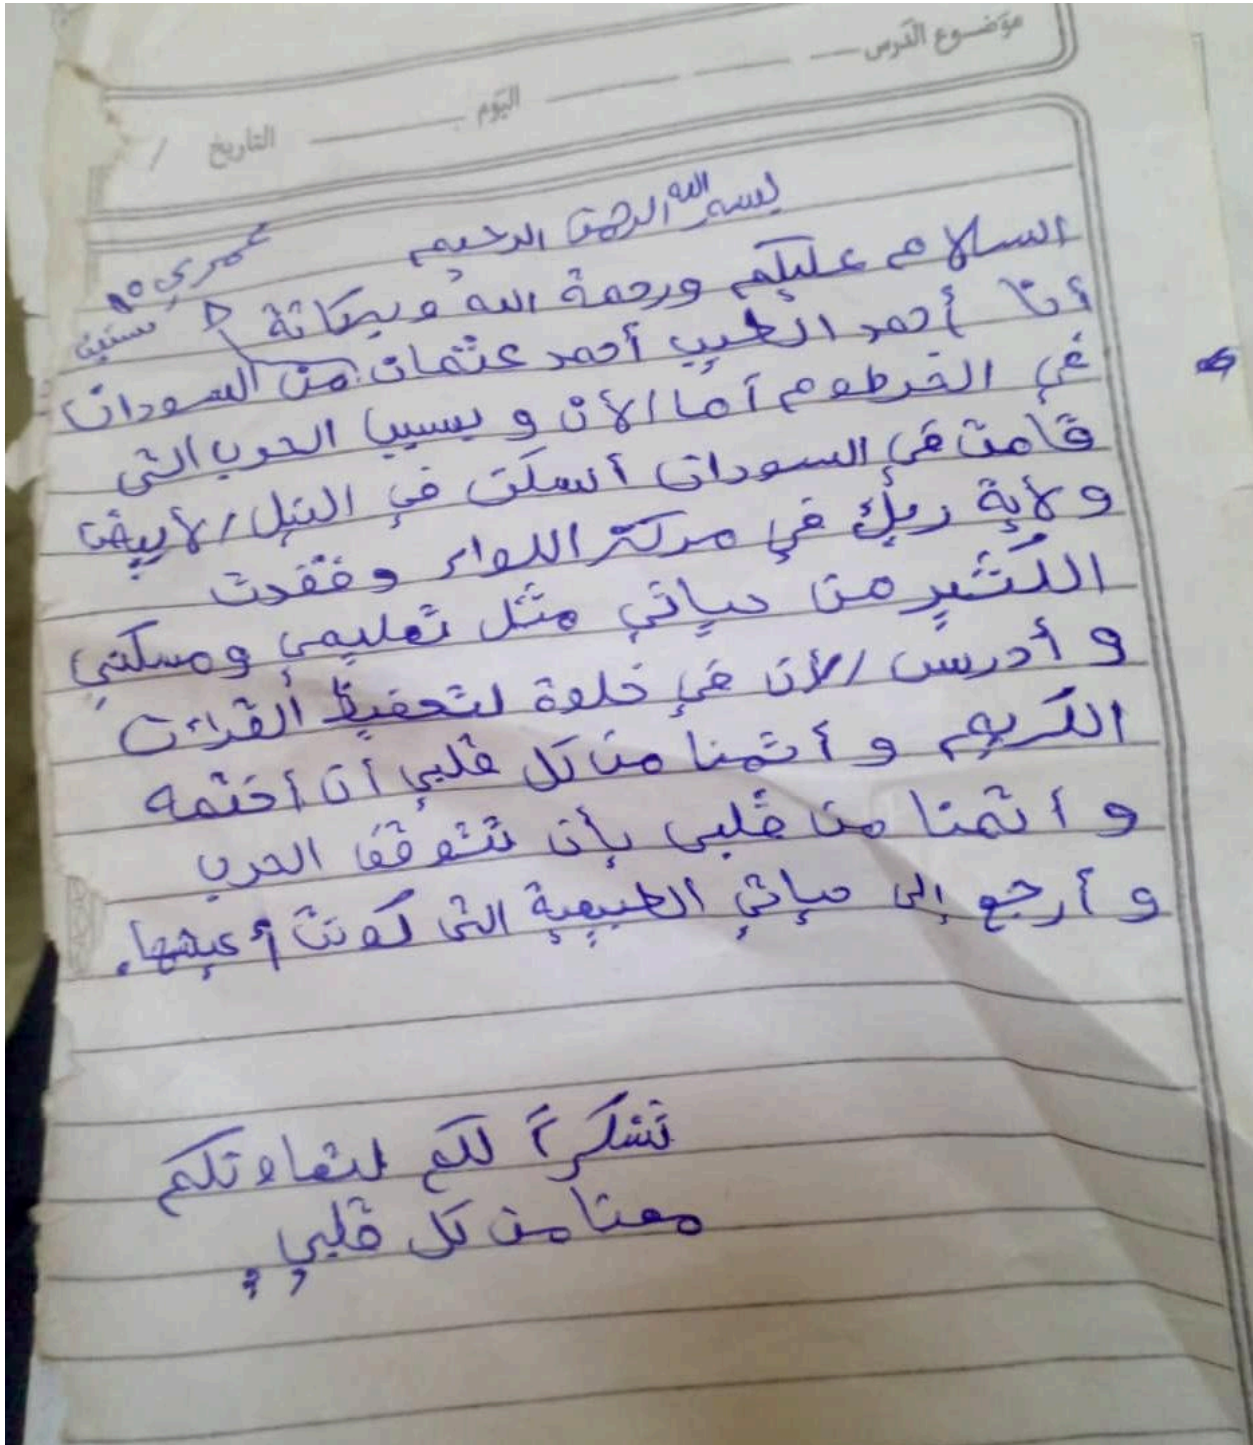 موضوع الدرس
اليوم
التاريخ /
بسم الله الرحمن الرحيم
السلام عليكم ورحمة الله وبركاتة
عمري ١٠ سنين
أنا أحمد الطيب أحمد عثمان من السودان
في الخرطوم أما الأن و بسبب الحرب التي
قامت في السودان أسكن في النيل الأبيض
ولاية ربك في مركز اللواء وفقدت
الكثير من حياتي مثل تعليمي ومسكني
و أدرس الأن في خلوة لتحفيظ القرءان
الكريم و أتمنا من كل قلبي أن أختمه
و أتمنا من قلبي بأن تتوقف الحرب
و أرجع إلى حياتي الطبيعية التي كونت أعيشها.
شكراً لكم لتعاونكم
معنا من كل قلبي